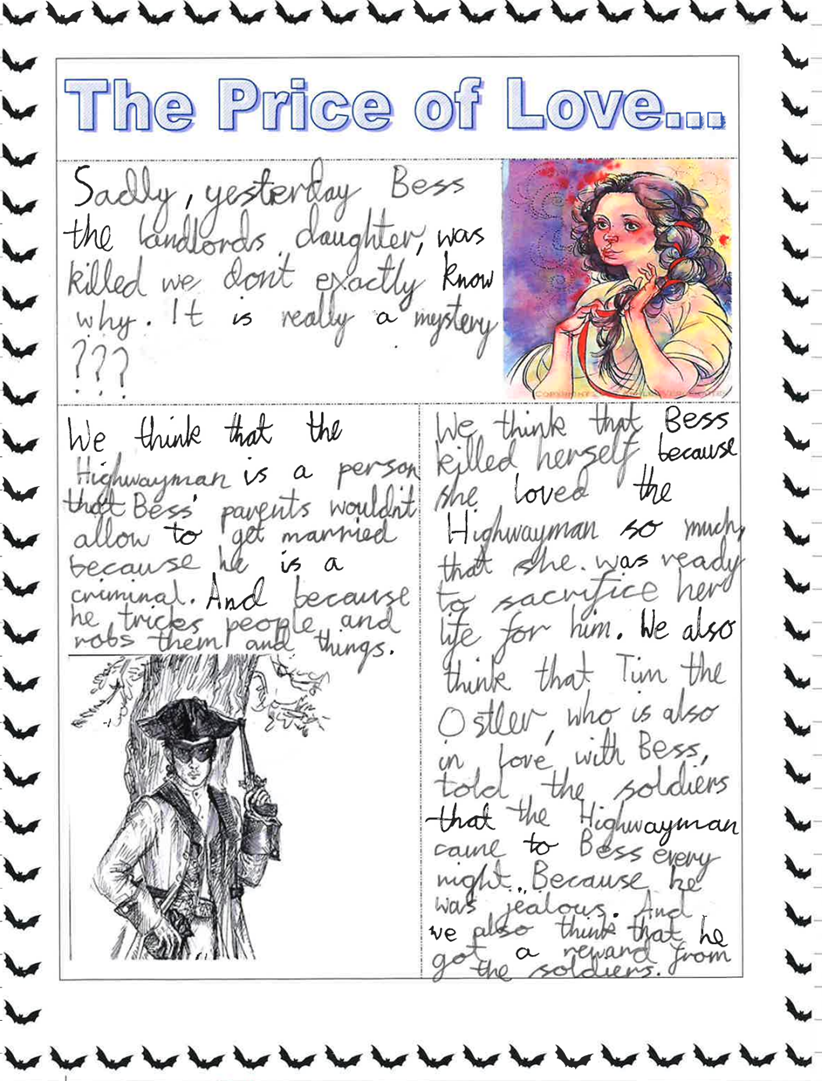 The Price of Love...
Sadly, yesterday Bess
the landlords daughter, was
killed we don't exactly know
why. It is really a mystery
???
We think that the
Highwayman is a person
that Bess' parents wouldn't
allow to get married
because he is a
criminal. And because
he tricks people and
robs them and things.
We think that Bess
killed herself because
she loved the
Highwayman so much,
that she was ready
to sacrifice her
life for him. We also
think that Tim the
Ostler, who is also
in love with Bess,
told the soldiers
that the Highwayman
came to Bess every
night. Because he
was jealous. And
we also think that he
got a reward from
the soldiers.